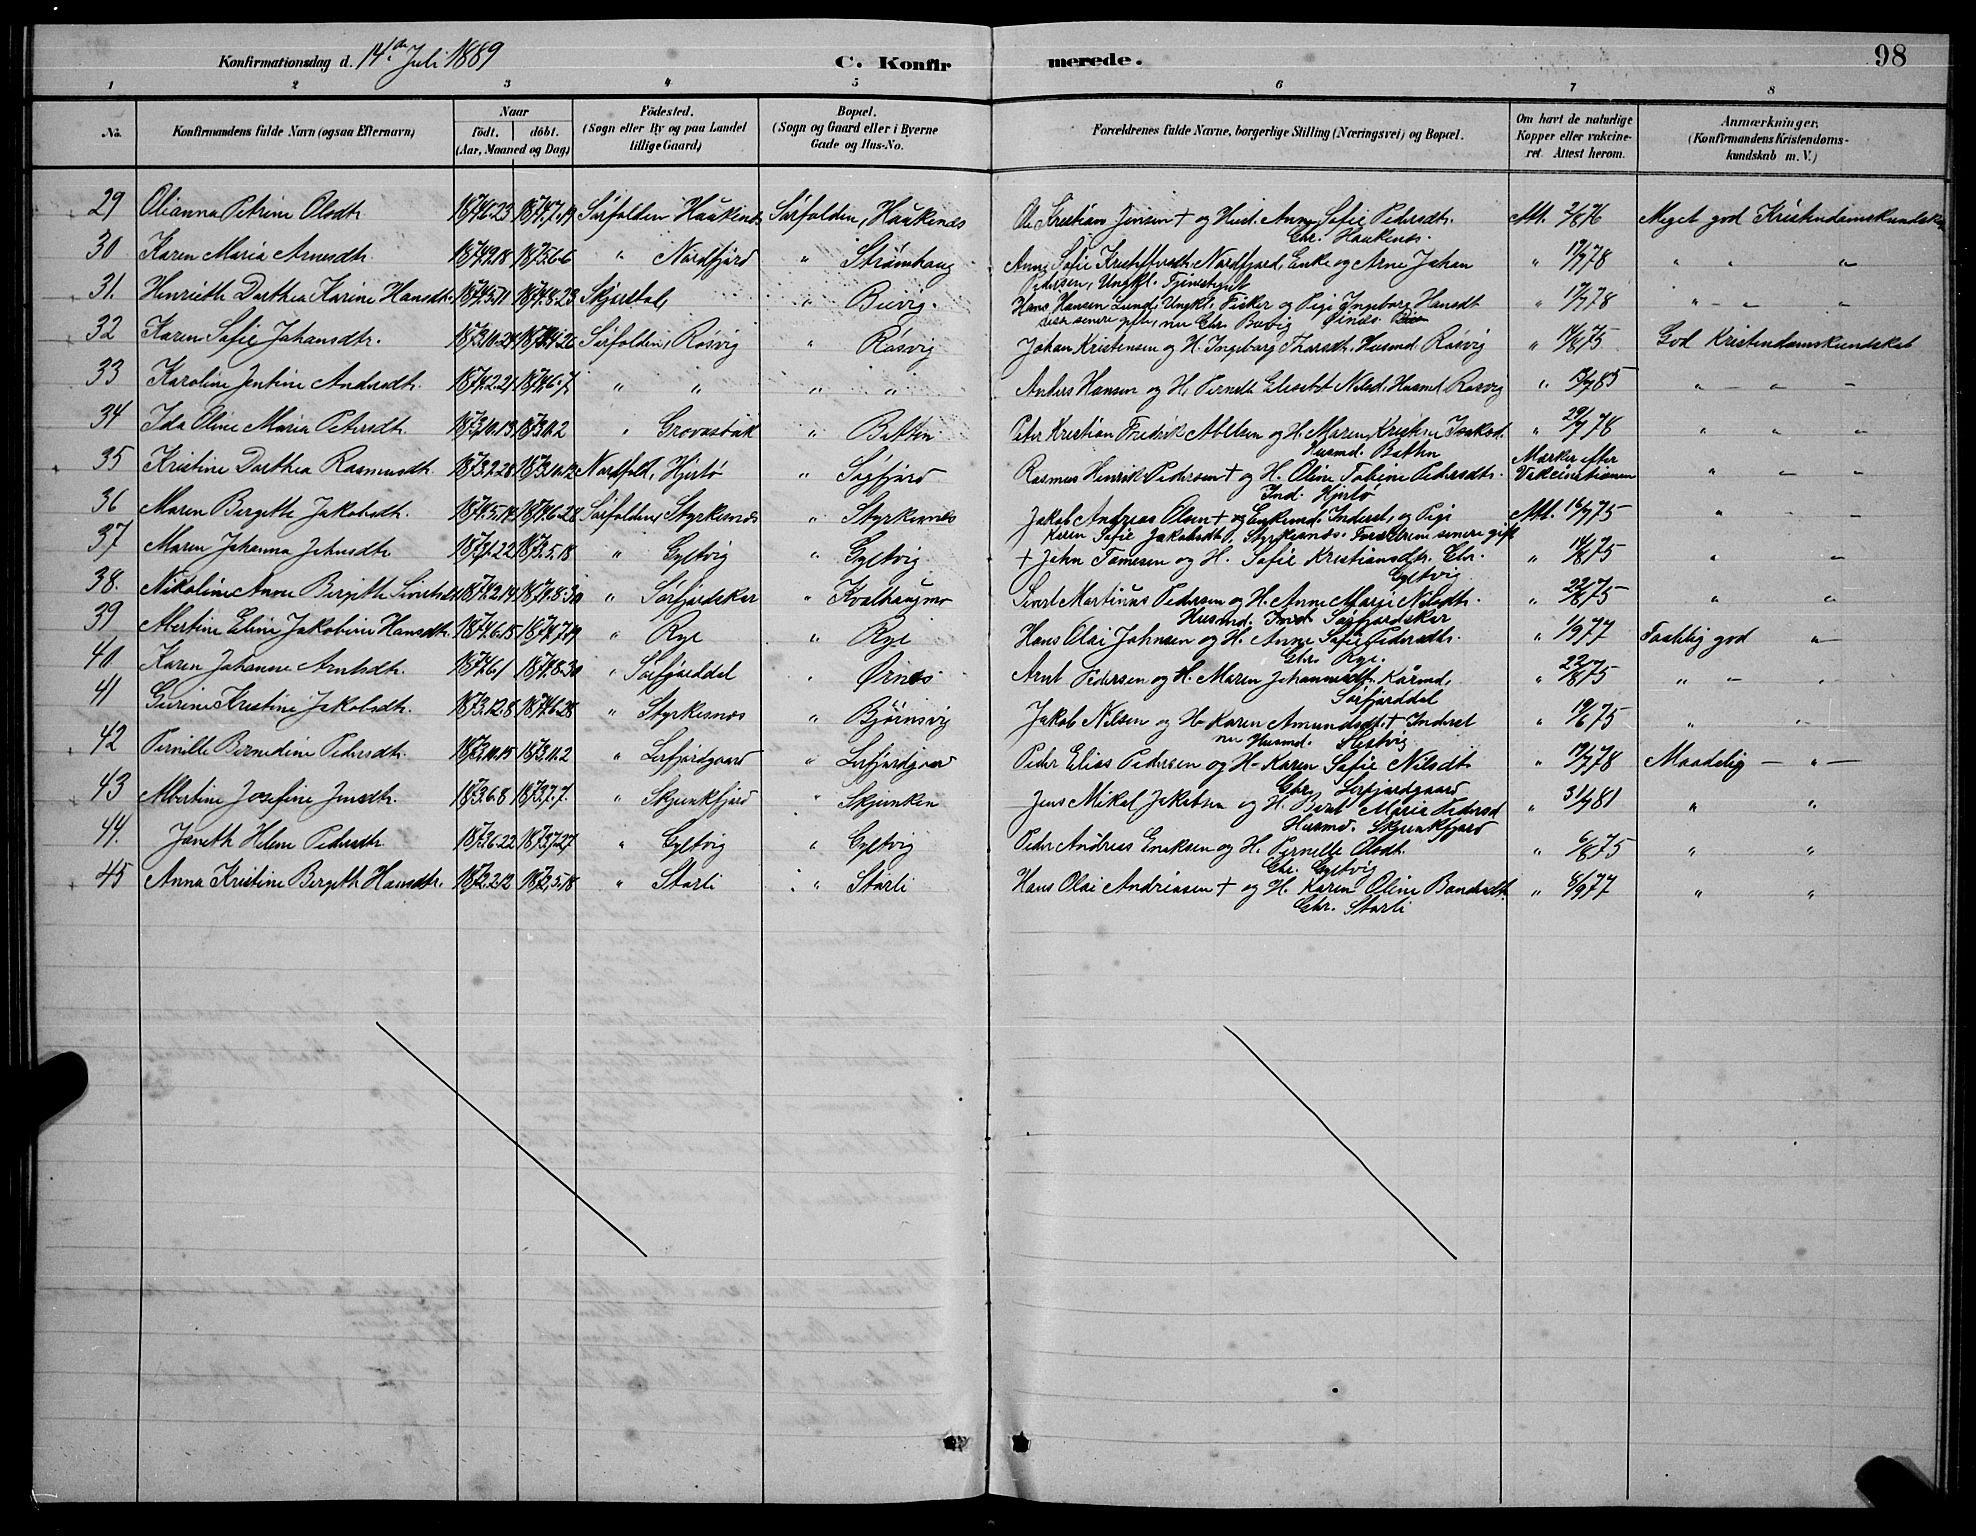 Konfirmationsdag d. 14de Juli 1889 C. Konfir merede. 98
1 2 3 4 5 6 7 8
No. Konfirmandens fulde Navn (ogsaa Efternavn) Naar födt. döbt. (Aar, Maaned og Dag) Födested. (Sogn eller By og paa Landet tillige Gaard) Bopæl. (Sogn og Gaard eller i Byerne Gade og Hus-No. Forældrenes fulde Navne, borgerlige Stilling (Næringsvei) og Bopæl. Om havt de naturlige Kopper eller vakcineret. Attest herom. Anmærkninger. (Konfirmandens Kristendomskundskab m. V.)
29 Olianna Petrine Olsdtr 1874.6.23 1874.7.19 Sørfolden Haukenæs Sørfolden, Haukenæs Ole Kristian Jensen + og Hust. Anne Sofie Pedersdtr. Att. 2/8 76 Meget god Kristendomskundskab
Gbr. Haukenæs.
30 Karen Maria Arnesdtr. 1874.9.18 1875.6.6 " Nordfjord " Strømhaug Anne Sofie Kristoffersdtr. Nordfjord, Enke og Arne Johan " 17/7 78 " " "
Pedersen, Ungkl. Tjenestegut
31. Henriette Dorthea Karine Hansdtr. 1874.5.11 1874.8.23 Skjerstad " Buvig. Hans Hansen Lund, Ungkl. Fisker og Pige Ingeborg Hansdt " 17/7 78 " - " - "
disse senere gifte, nu Gbr. Buvig
32 Karen Sofie Johansdtr. 1873.10.24 1874.4.26 Sørfolden, Røsvig " Røsvig Johan Kristensen og H. Ingeborg Thorsdtr. Husmd. Røsvig " 75 God Kristendomskundskab
33 Karoline Jentine Andersdtr. 1874.2.21 1874.6.7 " " " " Anders Hansen og H. Pernelle Elisabet Nilsd. Husmd. Røsvig " 85 " - " - "
34 Ida Oline Maria Petersdtr. 1873.10.13 1873.11.2 " Grovasbak " Botten Peter Kristian Fredrik Abelsen og H. Maren Kristine Isaksd. " 29/7 78 " " "
Husmd. Botten
35 Kristine Dorthea Rasmusdtr. 1873.2.28 1873.10.12 Nordfold, Hjertø " Sagfjord Rasmus Henrik Pedersen + og H. Oline Tobine Pedersdtr. Mærker efter Vakcinationen " - "
Ind. Hjertø
36 Maren Bergitte Jakobsdtr. 1874.5.19 1874.6.28 Sørfolden, Styrkesnæs " Styrkesnæs Jakob Andreas Olsen + og Enkemd. Inderst, og Pige Att. 16/7 75 " - " - "
Karen Sofie Jakobsdtr., Styrkesnæs. Forældrene senere gift
37 Maren Johanna Johnsdtr. 1873.1.22 1873.5.18 " Gyltvig " Gyltvig + John Tomesen og H. Sofie Kristiansdtr. Gbr. " 75 " "
Gyltvig
38. Nikoline Anne Bergitte Sivertsd 1874.2.14 1874.8.30 " Sørfjordskar " Kvalhaugmo Sivert Martinus Pedersen og H. Anne Marie Nilsdtr. " 22/8 75 " "
Husmd. Sørfjordskar
39 Albertine Eline Jakobine Hansdtr. 1874.6.15 1874.7.19 " Rye " Rye Hans Olai Johnsen og H. Anne Sofie Pedersdtr. " 1/9 77 Taalelig god - " -
Gbr. Rye.
40. Karen Johanne Arntsdtr. 1874.6.1 1874.8.30 " Sørfjorddal " Ørnes Arnt Pedersen og H. Maren Johannesdtr. Kårmd. " 22/8 75 " " - "
Sørfjorddal
41 Gurine Kristine Jakobsdtr. 1873.12.8 1874.6.28 " Styrkesnæs " Bjørnsvig Jakob Nilsen og H. Karen Amundsdtr. + Inderst " 19/6 75 " "
nu Husmd. Slesvig
42 Pernille Bernedine Pedersdtr. 1873.10.15 1873.11.2 " Lerfjordgaard " Lerfjordgaard Peder Elias Pedersen og H. Karen Sofie Nilsdt. " 17/7 78 Maadelig - " -
Gbr. Lerfjordgaard
43 Albertine Josefine Jensdtr. 1873.6.8 1873.7.7. " Skjunkfjord " Skjunken Jens Mikal Jakobsen og H. Berit Maria Pedersd " 31/7 81 " "
Husmd. Skjunkfjord
44. Janeth Helene Pedersdtr. 1873.6.22 1873.7.27 " Gyltvig " Gyltvig Peder Andreas Eriksen og H. Pernelle Olsdt. " 6/8 75 " "
Gbr. Gyltvig
45 Anna Kristine Bergitte Hansdtr. 1872.2.12 1872.5.18 " Storli " Storli Hans Olai Andreassen + og H. Karen Oline Bendiksdtr. " 6/9 77 " "
Gbr. Storli